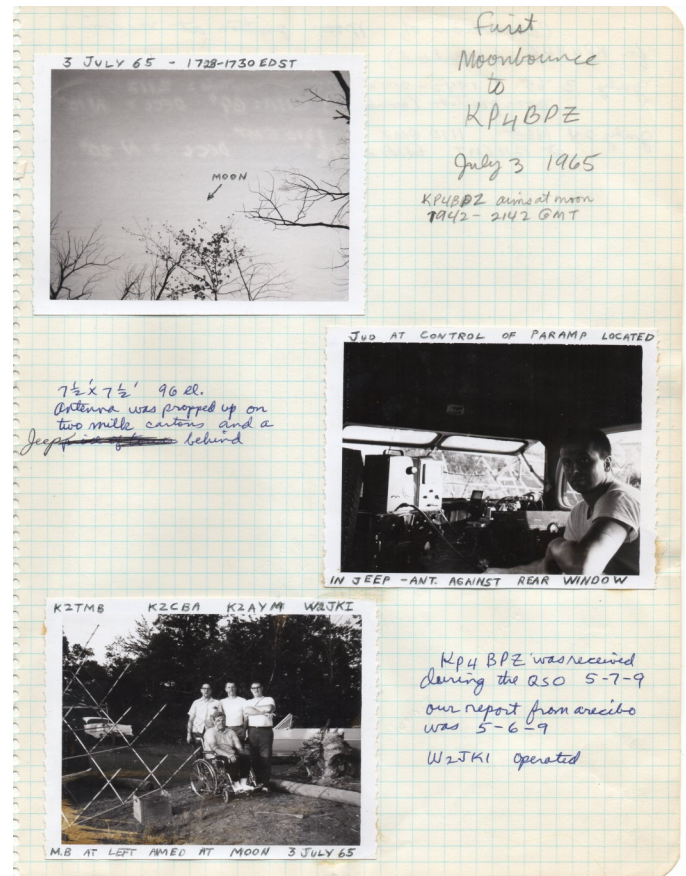 First
Moonbounce
to
KP4BPZ
July 3 1965
KP4BPZ aims at moon
1942 - 2142 GMT
3 JULY 65 - 1728-1730 EDST
MOON
JUD AT CONTROL OF PARAMP LOCATED
IN JEEP - ANT. AGAINST REAR WINDOW
7½' x 7½' 96 el.
Antenna was propped up on
two milk cartons and a
Jeep behind
K2TMB K2CBA K2AYM W2JKI
M.B AT LEFT AIMED AT MOON 3 JULY 65
KP4BPZ was received
during the QSO 5-7-9
our report from arecibo
was 5-6-9
W2JKI Operated